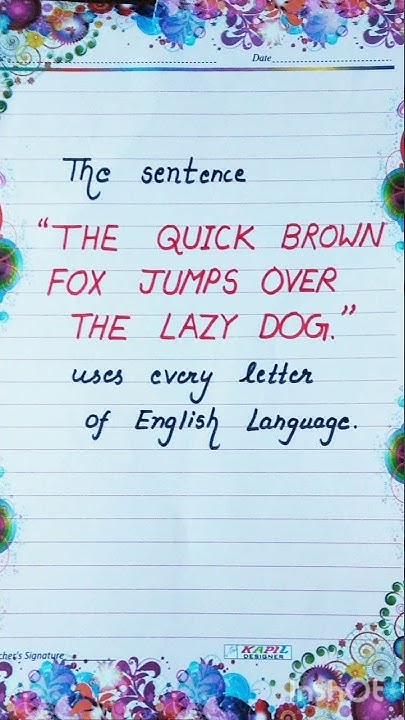 Date
The sentence
“THE QUICK BROWN
FOX JUMPS OVER
THE LAZY DOG.”
uses every letter
of English Language.
cher's Signature
KAPIL
DESIGNER
InShOt